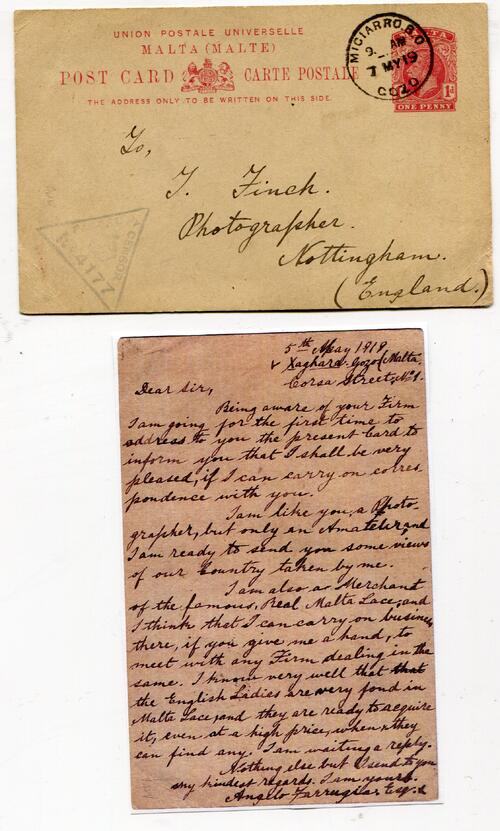 UNION POSTALE UNIVERSELLE
MALTA (MALTE)
POST CARD CARTE POSTALE
THE ADDRESS ONLY TO BE WRITTEN ON THIS SIDE.
MICIARRO B.O
9 AM
7 MY 19
GOZO
MALTA
1d
ONE PENNY
To,
T. Finch.
Photographer.
Nottingham.
(England.)
4177
5th May 1919
Xaghara. Gozo (Malta
Corsa Street, No 1.
Dear Sir,
Being aware of your Firm
I am going for the first time to
address to you the present Card to
inform you that I shall be very
pleased, if I can carry on corres
pondence with you.
I am like you, a Photo-
grapher, but only an Amateur, and
I am ready to send you some views
of our Country taken by me.
I am also a Merchant
of the famous, Real Malta Lace, and
I think that I can carry on business
there, if you give me a hand, to
meet with any Firm dealing in the
same. I know very well that
the English Ladies are very fond in
Malta Lace, and they are ready to acquire
it, even at a high price, when they
can find any. I am waiting a reply.
Nothing else but I send to you
my kindest regards. I am yours.
Angelo Farrugia, Esq.